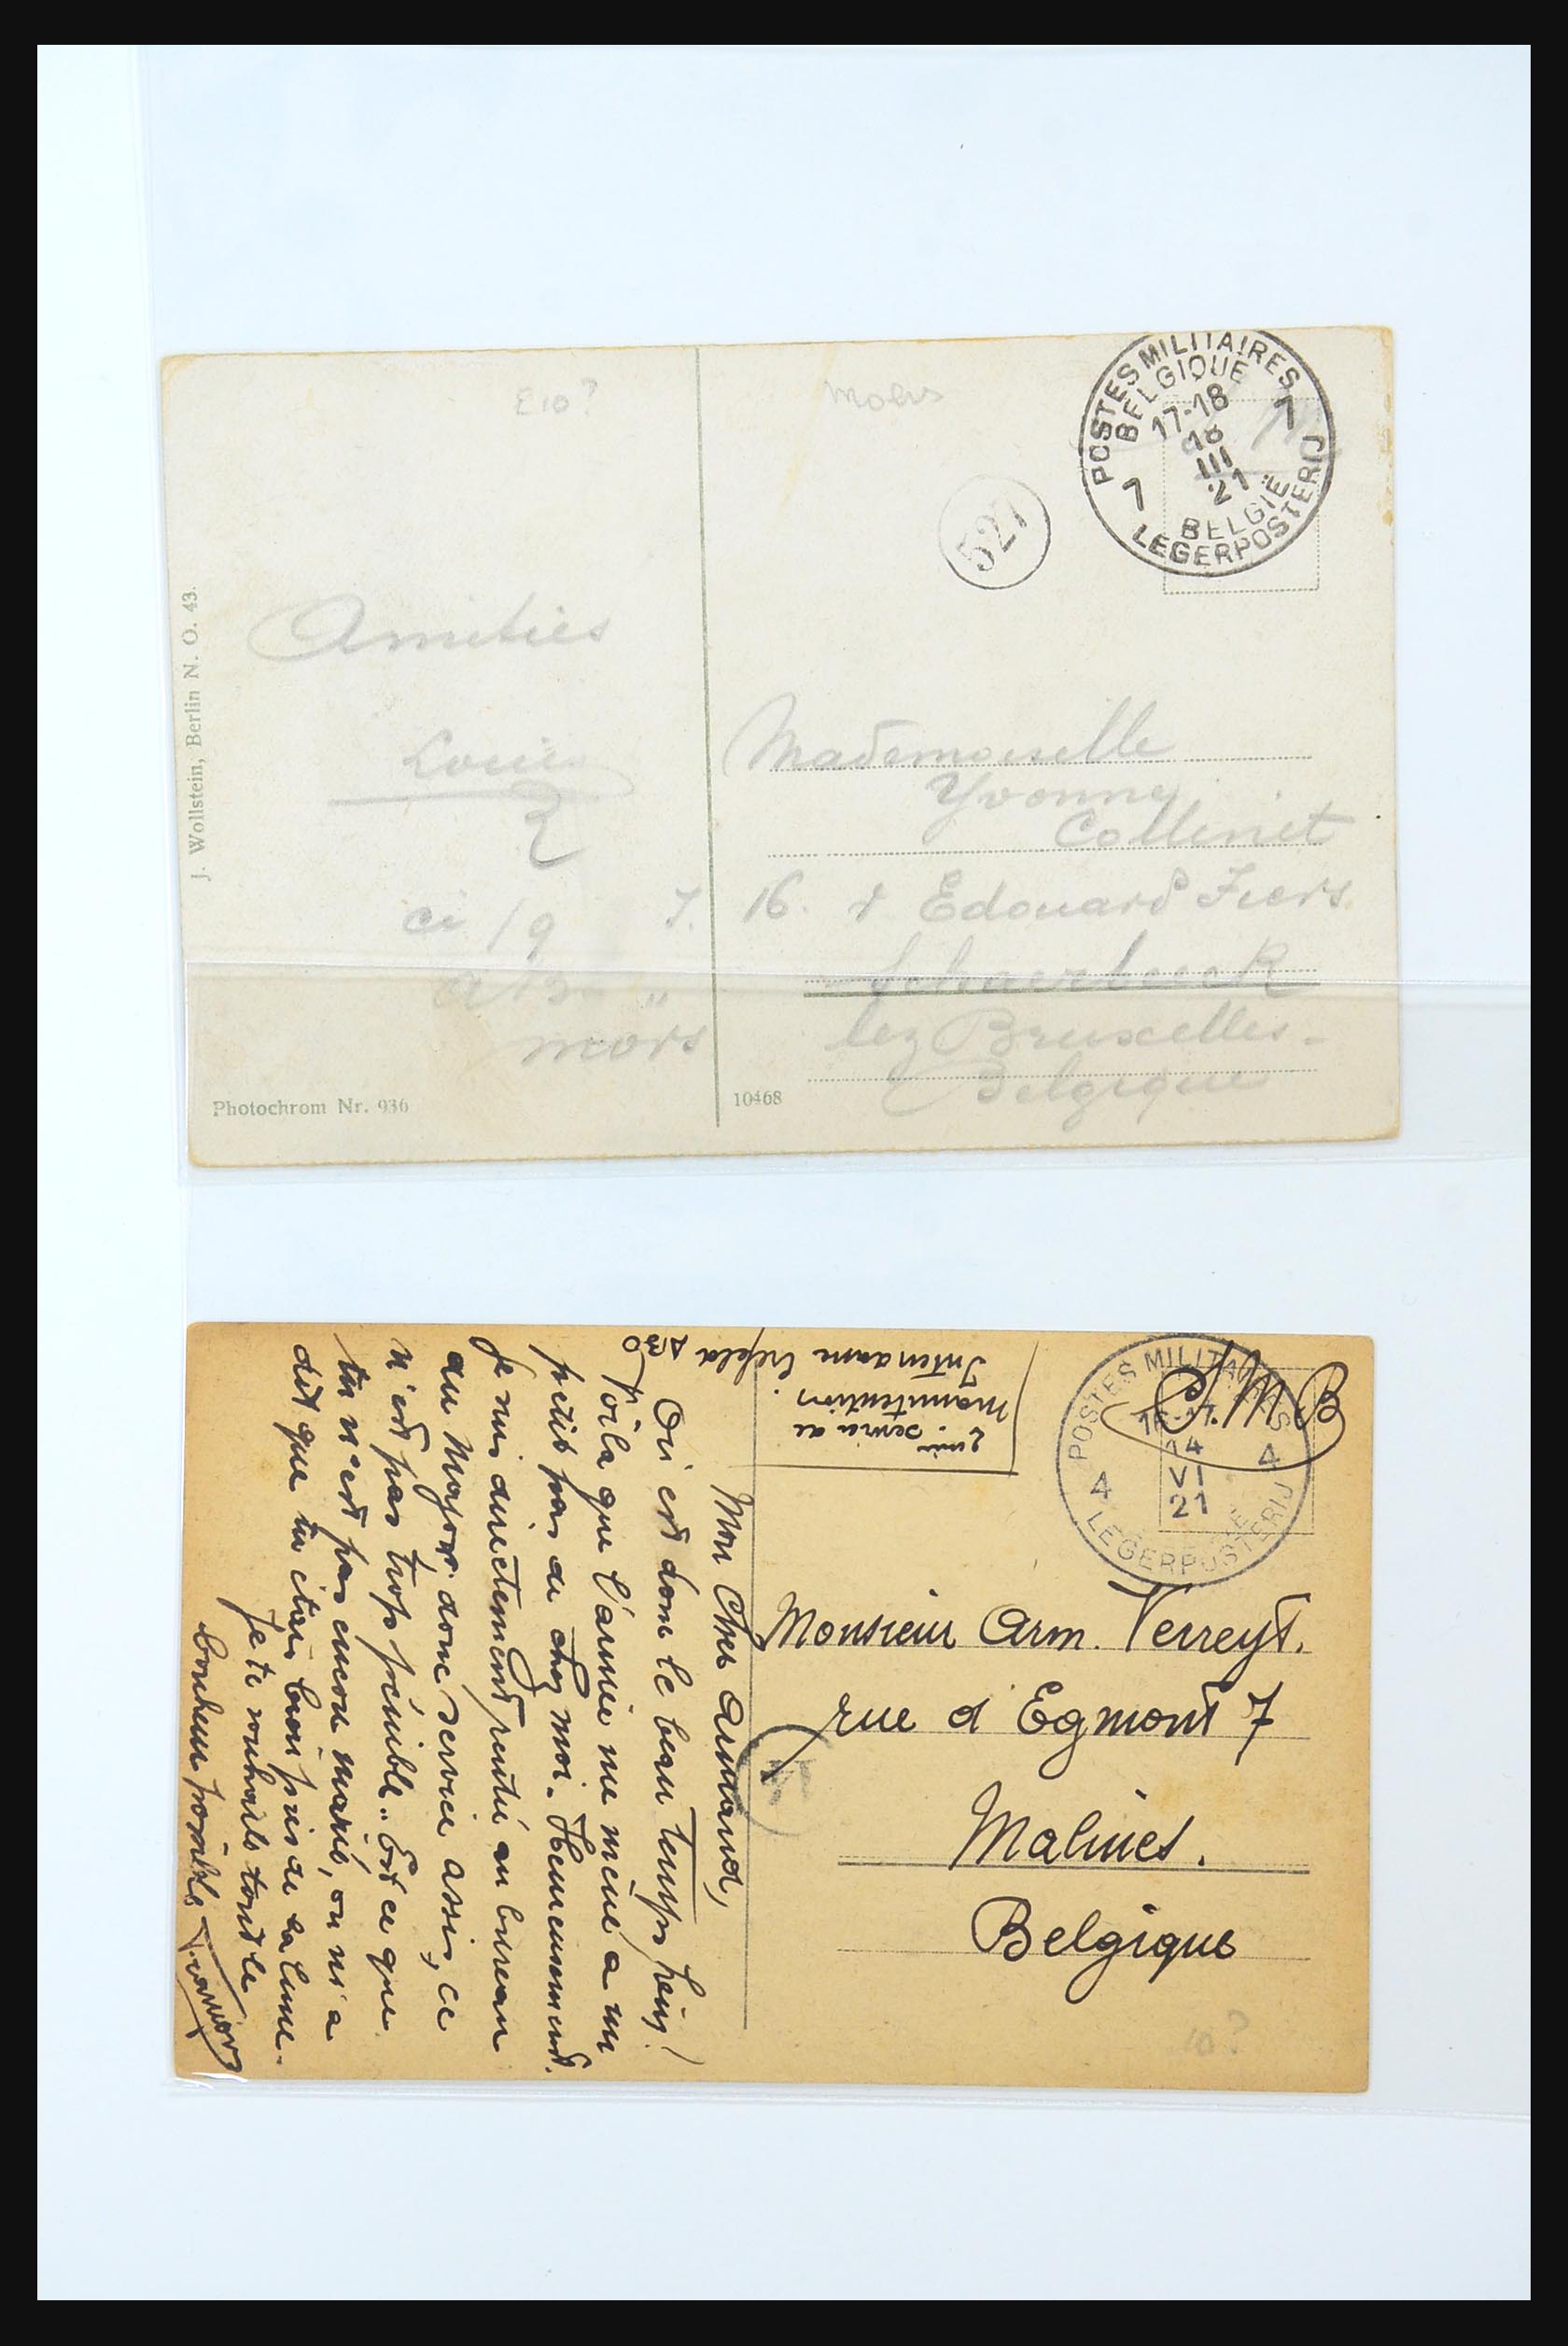 £10?
Mons
POSTES MILITAIRES
BELGIQUE
17-18
18
III
21
7 7
BELGIË
LEGERPOSTERIJ
527
Amitiés
Louis
Mademoiselle
Yvonne
Collinet
16. r Edouard Fiers
Schaerbeeck
lez Bruxelles.
Belgique
ci /9 7.
mors
J. Wollstein, Berlin N. O. 43.
Photochrom Nr. 936
10468
POSTES MILITAIRES
14
VI
21
4 4
LEGERPOSTERIJ
SMB
Intendance Crefeld ABO
Manutention.
service de
Monsieur Arm. Verreyt.
rue d'Egmont 7
Malines.
Belgique
10?
Mon Cher Armand,
Où est donc le beau temps hein!
Voila que l'armée me mène a un
petit pas de chez moi. Heureusement
je suis directement rentré au bureau
du Major donc service assis, ce
n'est pas trop pénible. Est ce que
tu n'est pas encore marié, on m'a
dit que tu étais bien pris de la lune.
Je te souhaite tout le
bonheur possible